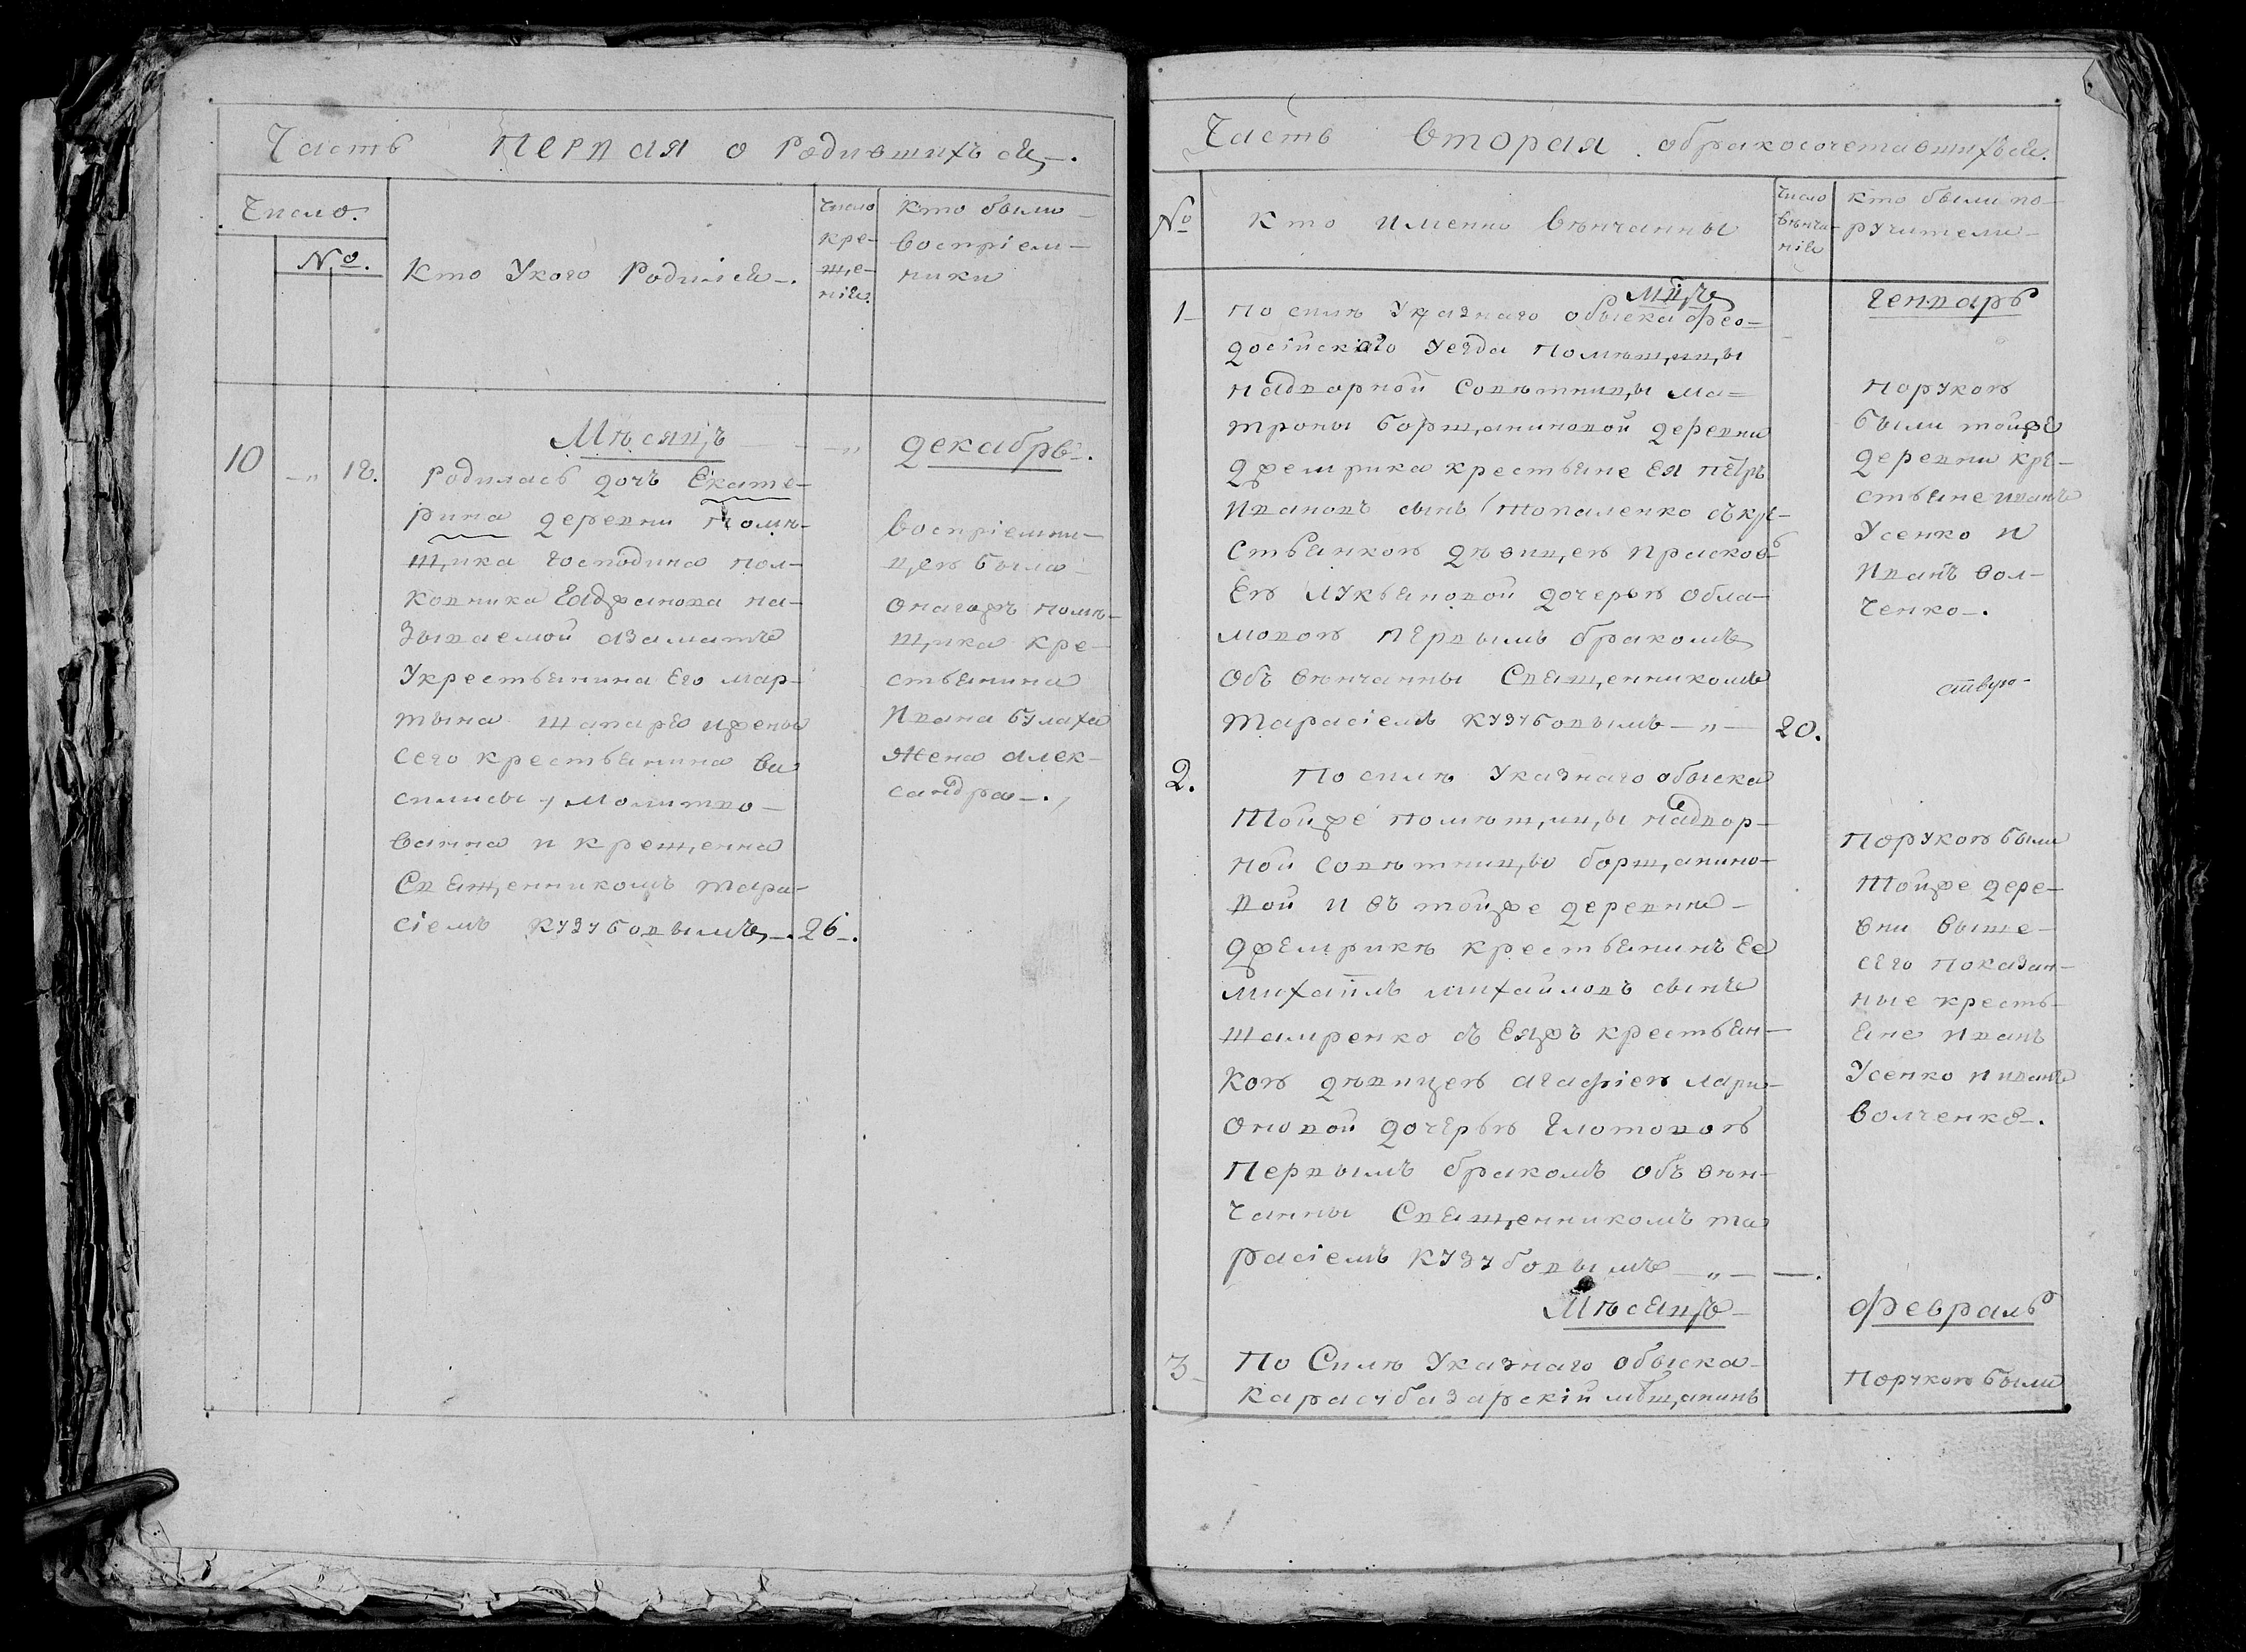 Часть первая о родившихся.
Число.
№.
Кто Укого Родился.
Число
кре-
ще-
нія.
Кто были
воспріем-
ники
Мѣсяцъ Декабрь.
10 18. Родилась дочь Екате-
рина деревни помѣ-
щика господина пол-
ковника на-
зываемой азаматъ
Укрестьянина Его Мар-
тына шапаря ижены
сего крестьянина Ва
силисы, Молитво-
ванна и крещенна
Священникомъ тара-
сіемъ Кузубовымъ. 26.
Воспріемни-
цею была
онагожъ помѣ-
щика кре-
стьянина
Ивана булаха
Жена алек-
сандра.
Часть вторая обракосочетавшихся.
№
Кто Именно вѣнчанны
Число
вѣнча-
нія
Кто были по-
ручители
Мцъ Генварь
1 по силѣ Указнаго обыска фео-
досійскаго уезда помѣщицы
надворной Совѣтницы ма-
троны борщаниновой деревни
джемрика крестьяне ея пётръ
Ивановъ сынъ топаленко съкре-
стьянкою дѣвицею прасковь
ею лукьяновой дочерью обла-
мовою первымъ бракомъ
объ вѣнчанны Священникомъ
тарасіемъ Кузубовымъ 20.
порукою
были тойже
деревни кре-
стьяне иванъ
Усенко и
Иванъ вол-
ченко.
2. По силѣ Указнаго обыска
тойже помѣщицы надвор-
ной совѣтницы борщанино-
вой и въ тойже деревни
джемрикѣ крестьянинъ ее
михаилъ михайловъ сынъ
шамренко съ еяжъ крестьян-
кою дѣвицею агафіею лари-
оновой дочерью глотовою
Первымъ бракомъ объ вѣн-
чанны Священникомъ та
расіемъ Кузубовымъ
Порукою были
тойже дере-
вни выше-
сего показан-
ные кресть-
яне иванъ
Усенко и иванъ
волченко.
Мѣсяцъ Февраль
3 По Силѣ Указнаго обыска
карасубазарскій мѣщанинъ
Порукою были